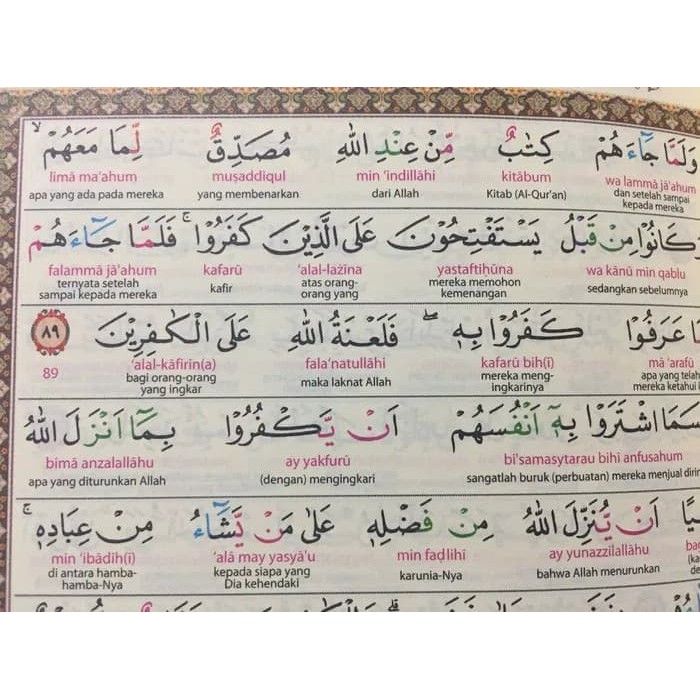 وَلَمَّا جَآءَهُمْ كِتٰبٌ مِّنْ عِنْدِ اللّٰهِ مُصَدِّقٌ لِّمَا مَعَهُمْۙ
wa lammā jā'ahum kitābum min 'indillāhi muṣaddiqul limā ma'ahum
dan setelah sampai kepada mereka Kitab (Al-Qur'an) dari Allah yang membenarkan apa yang ada pada mereka
وَكَانُوْا مِنْ قَبْلُ يَسْتَفْتِحُوْنَ عَلَى الَّذِيْنَ كَفَرُوْاۚ فَلَمَّا جَآءَهُمْ
wa kānū min qablu yastaftiḥūna 'alal-lażīna kafarū falammā jā'ahum
sedangkan sebelumnya mereka memohon kemenangan atas orang-orang yang kafir ternyata setelah sampai kepada mereka
عَرَفُوْا كَفَرُوْا بِهٖ فَلَعْنَةُ اللّٰهِ عَلَى الْكٰفِرِيْنَ ٨٩
mā 'arafū kafarū bih(ī) fala'natullāhi 'alal-kāfirīn(a) 89
apa yang telah mereka ketahui mereka meng-ingkarinya maka laknat Allah bagi orang-orang yang ingkar
اشْتَرَوْا بِهٖٓ اَنْفُسَهُمْ اَنْ يَّكْفُرُوْا بِمَآ اَنْزَلَ اللّٰهُ
bi'samasytarau bihī anfusahum ay yakfurū bimā anzalallāhu
sangatlah buruk (perbuatan) mereka menjual (dengan) mengingkari apa yang diturunkan Allah
اَنْ يُّنَزِّلَ اللّٰهُ مِنْ فَضْلِهٖ عَلٰى مَنْ يَّشَآءُ مِنْ عِبَادِهٖۚ
ay yunazzilallāhu min faḍlihī 'alā may yasyā'u min 'ibādih(ī)
bahwa Allah menurunkan karunia-Nya kepada siapa yang Dia kehendaki di antara hamba-hamba-Nya